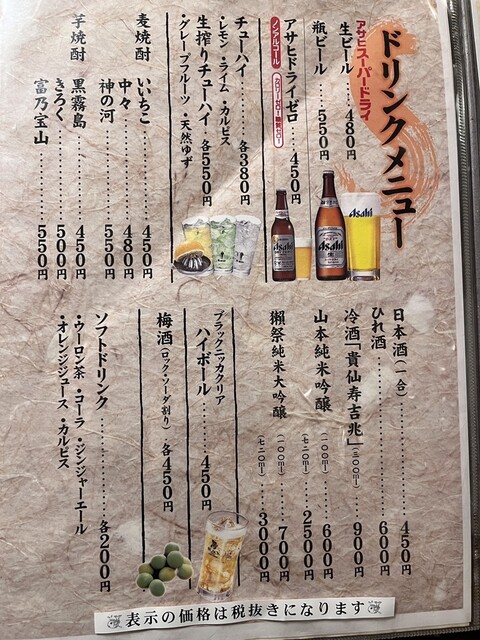 ドリンクメニュー
アサヒスーパードライ
生ビール………480円
瓶ビール………550円
アサヒドライゼロ………450円
ノンアルコール
カロリーゼロ 糖質ゼロ
チューハイ………各380円
・レモン・ライム・カルピス
生搾りチューハイ 各550円
・グレープフルーツ ・天然ゆず
麦焼酎
いいちこ………450円
中々………480円
神の河………550円
芋焼酎
黒霧島………450円
きろく………500円
富乃宝山………550円
日本酒(一合)………450円
ひれ酒………600円
冷酒「貴仙寿吉兆」(三〇〇ml)………900円
山本純米吟醸
(一〇〇ml)………600円
(七二〇ml)………2500円
獺祭純米大吟醸
(一〇〇ml)………700円
(七二〇ml)………3000円
ブラックニッカクリア
ハイボール………450円
梅酒(ロック・ソーダ割り) 各450円
ソフトドリンク………各200円
・ウーロン茶・コーラ・ジンジャーエール
・オレンジジュース・カルピス
Asahi
Asahi
Asahi
表示の価格は税抜きになります